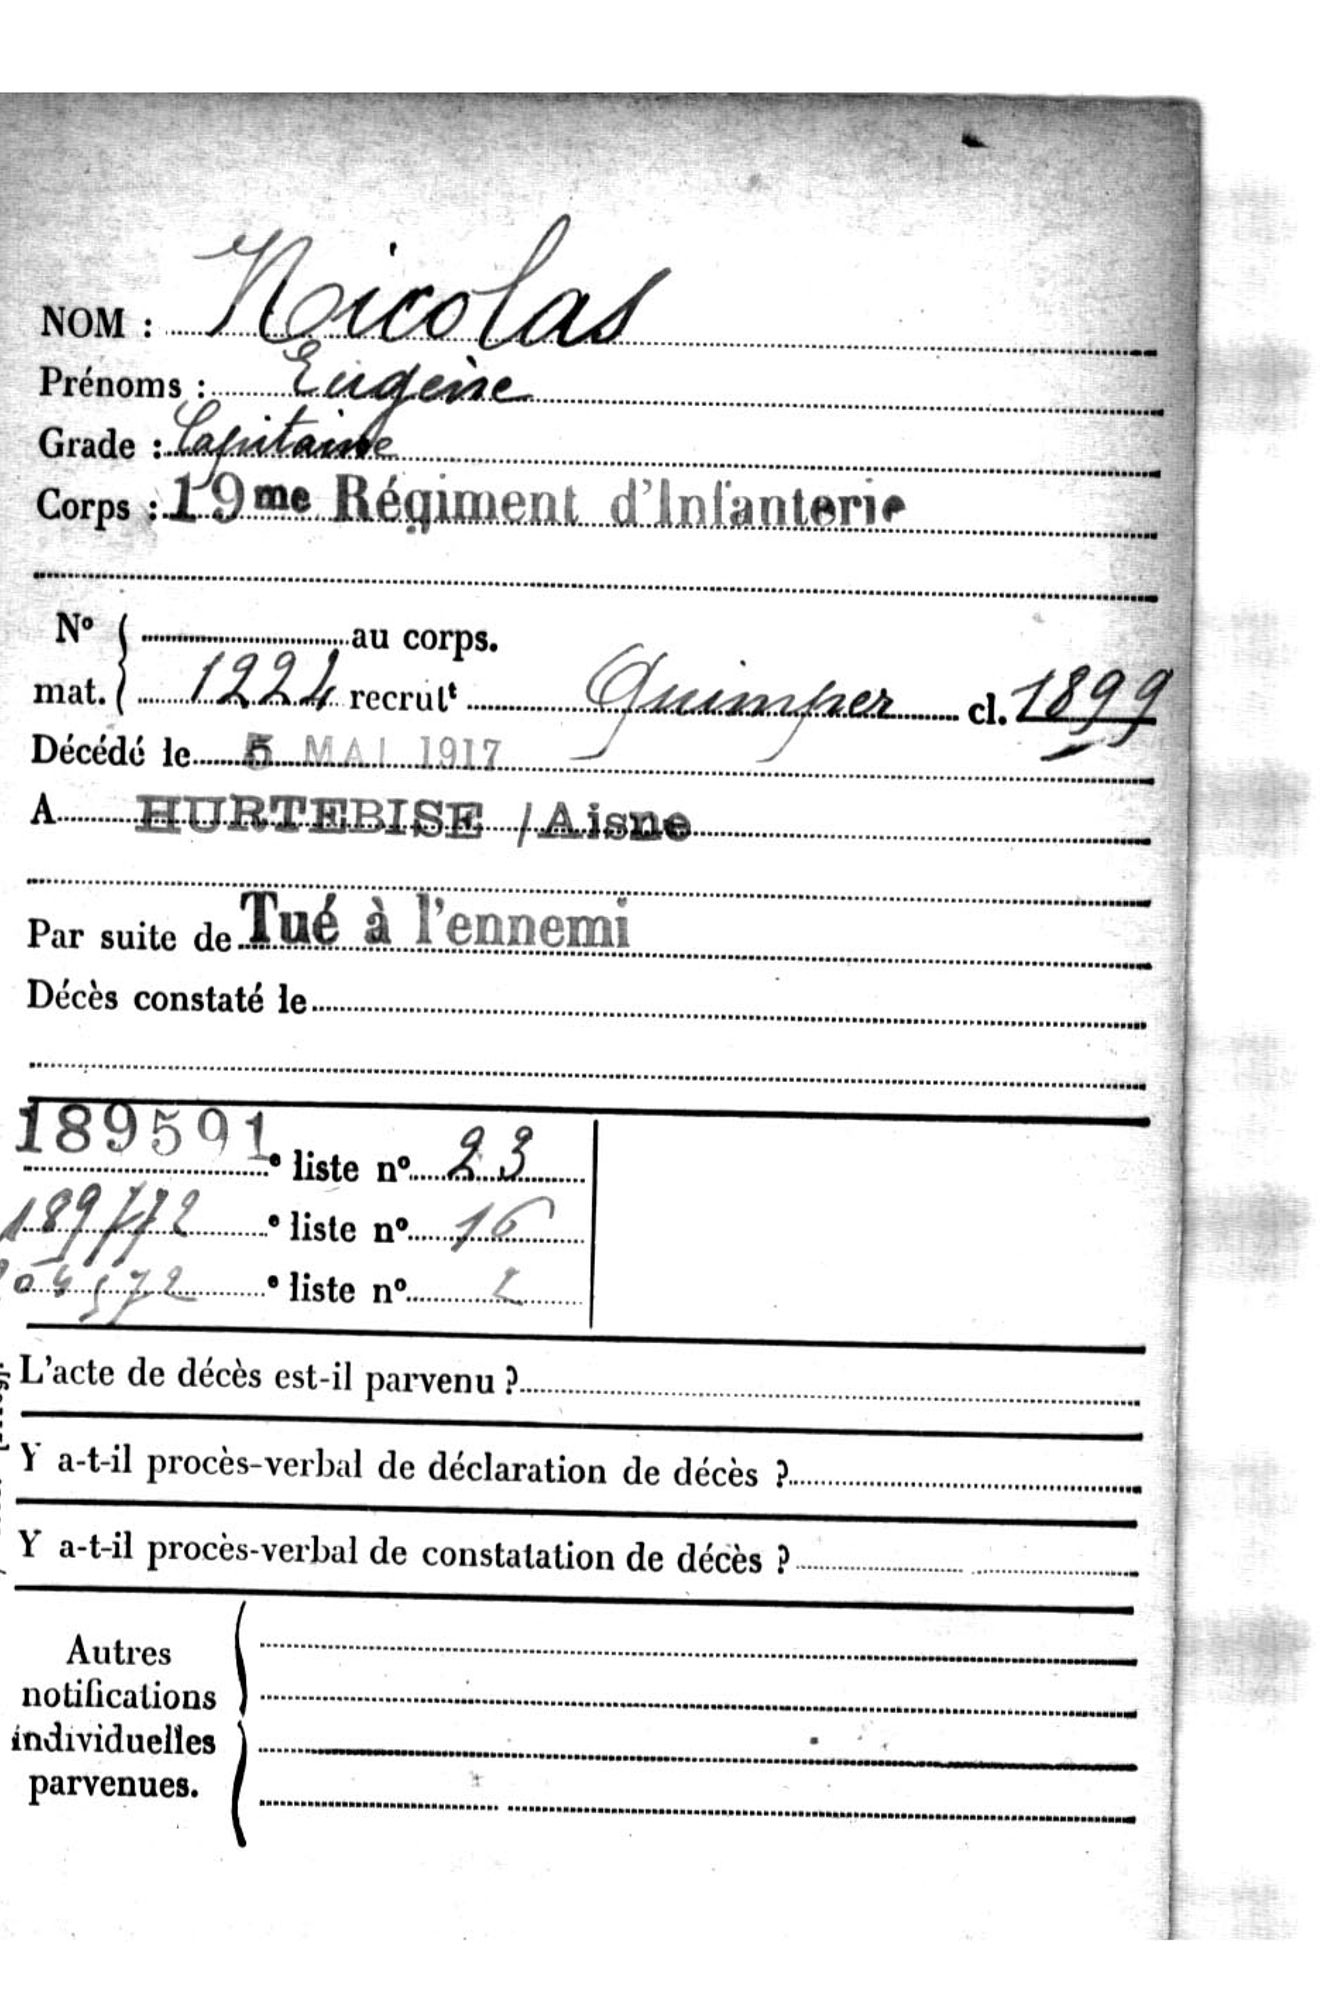 NOM : Nicolas
Prénoms : Eugène
Grade : Capitaine
Corps : 19me Régiment d'Infanterie
No au corps.
mat. 1224 recrut Quimper cl. 1899
Décédé le 5 MAI 1917
A HURTEBISE /Aisne
Par suite de Tué à l'ennemi
Décès constaté le
189591 e liste no 23
189772 e liste no 16
e liste no
L'acte de décès est-il parvenu ?
Y a-t-il procès-verbal de déclaration de décès ?
Y a-t-il procès-verbal de constatation de décès ?
Autres
notifications
individuelles
parvenues.